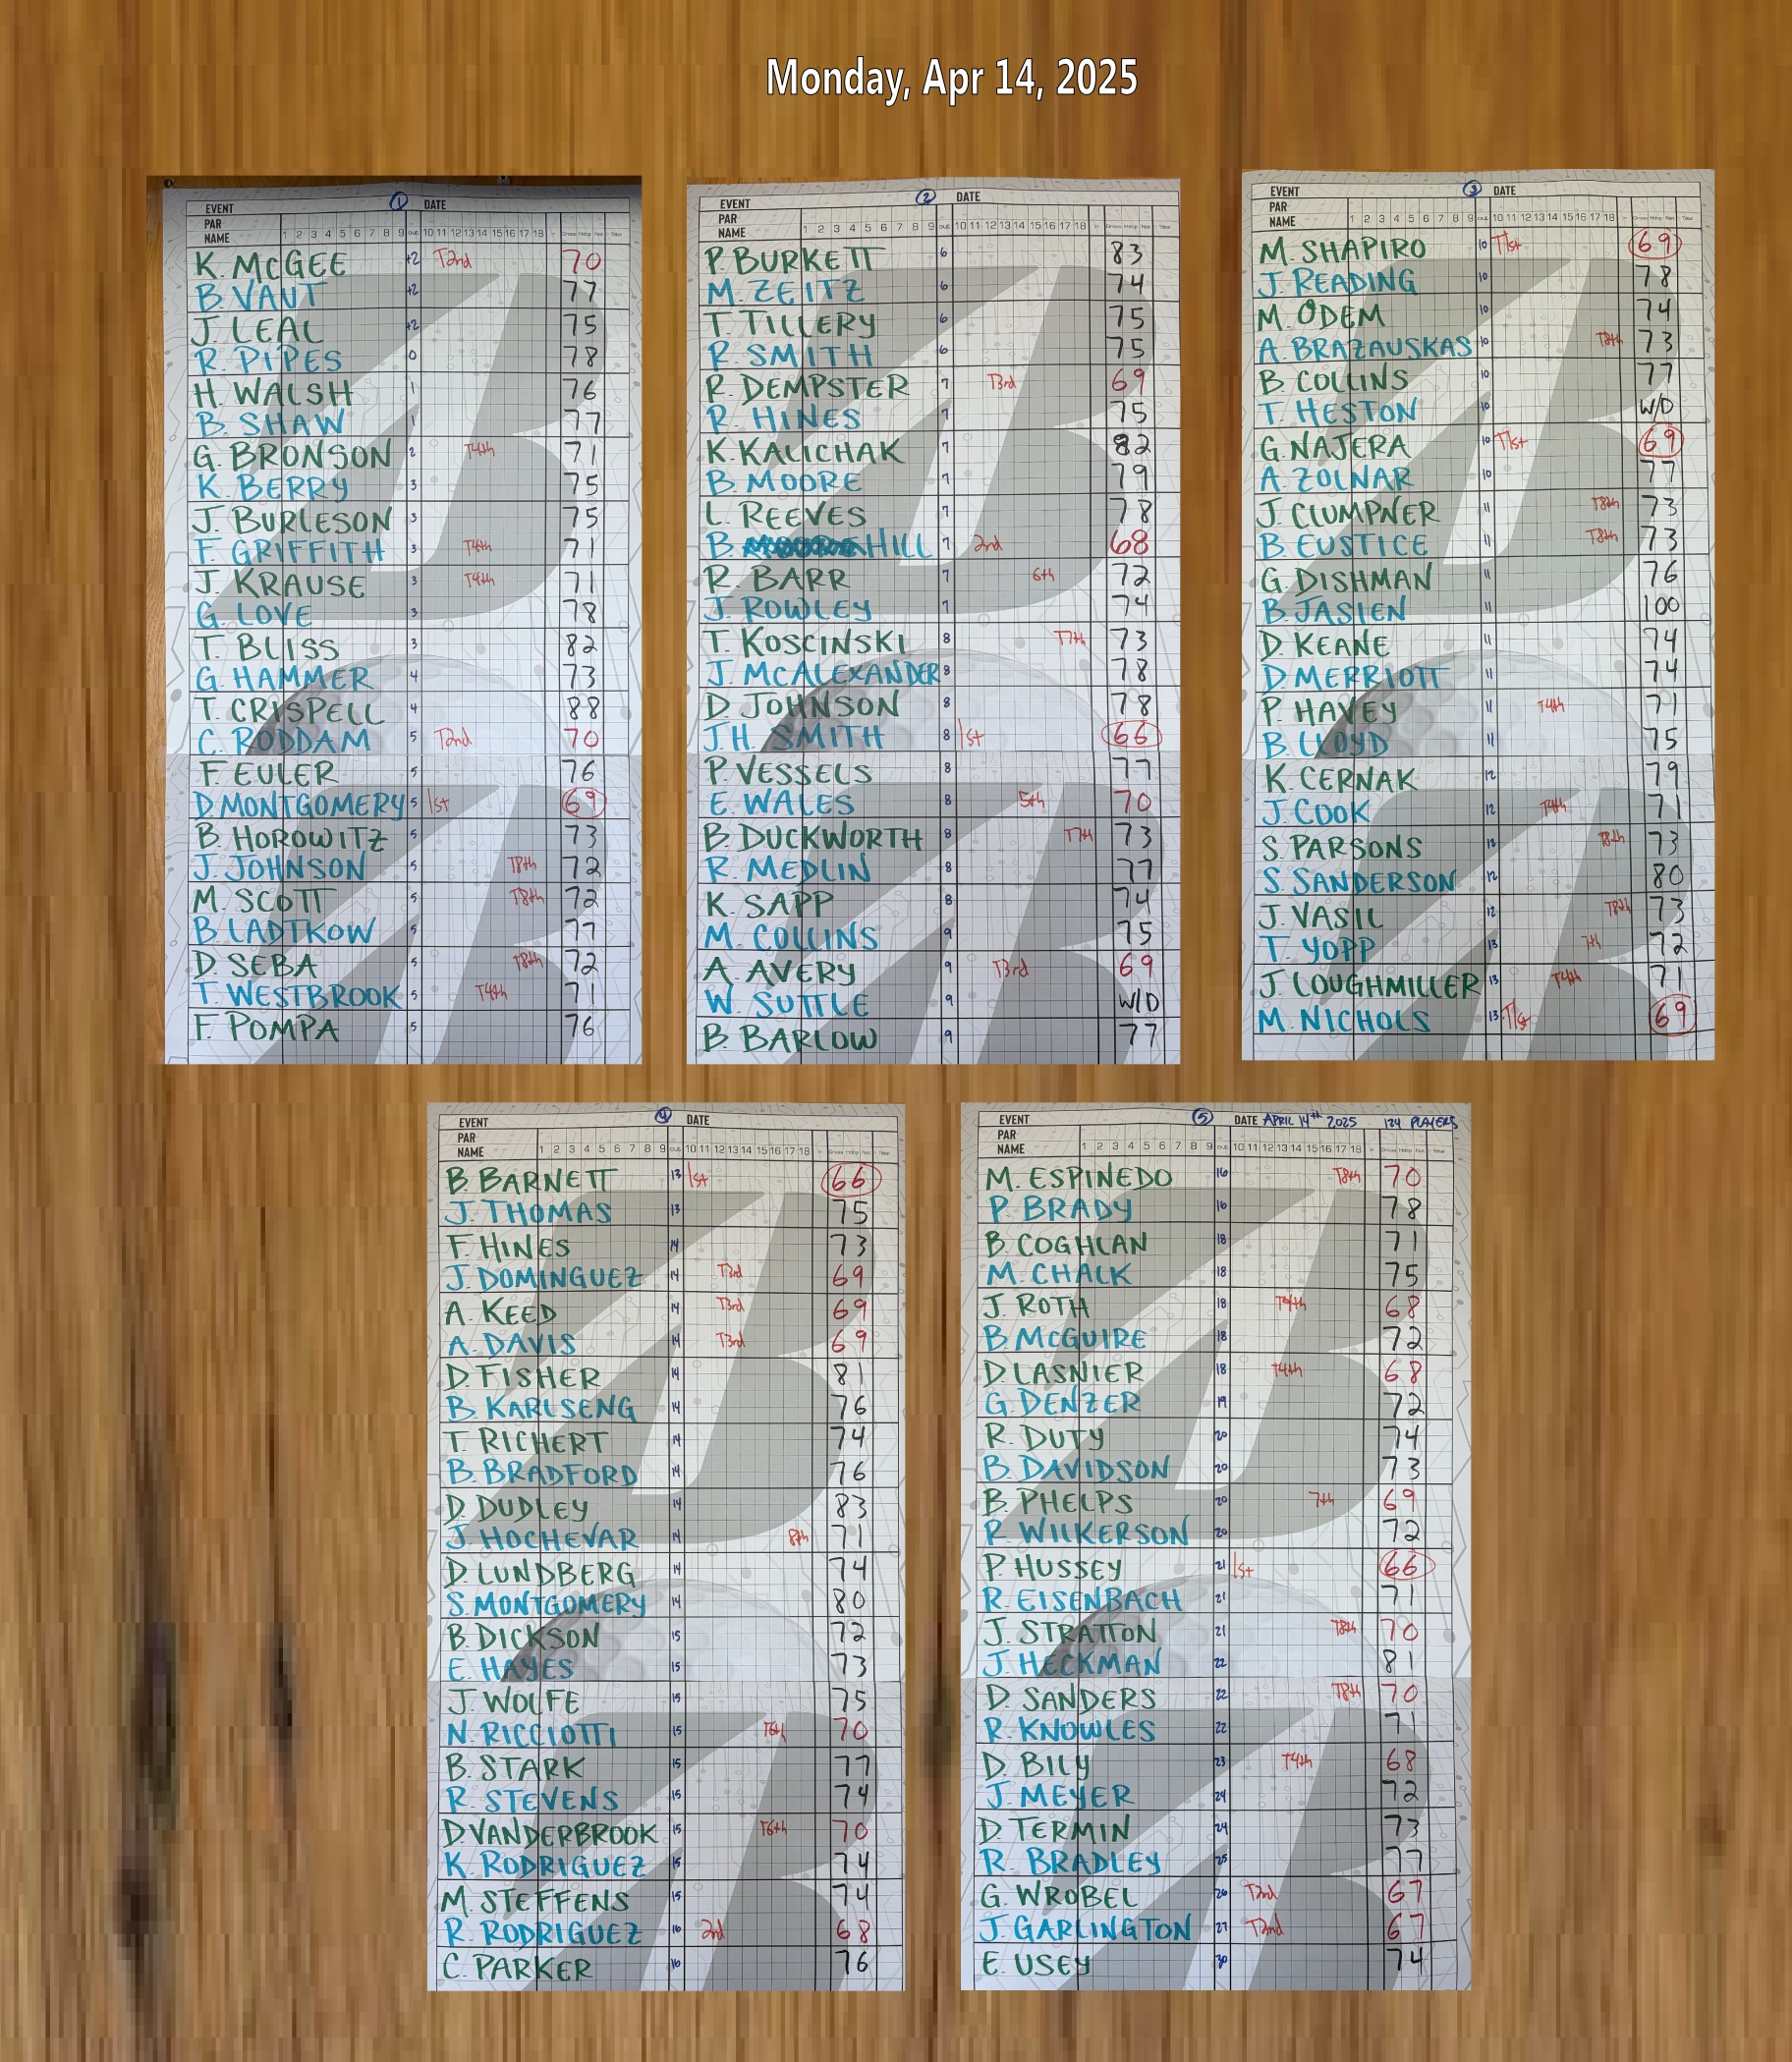 Monday, Apr 14, 2025
EVENT ① DATE
PAR
NAME 1 2 3 4 5 6 7 8 9 OUT 10 11 12 13 14 15 16 17 18 Gross Hdcp Net Total
K. MCGEE +2 T2nd 70
B. VAUT +2 77
J. LEAL +2 75
R. PIPES 0 78
H. WALSH 1 76
B. SHAW 1 77
G. BRONSON 2 T4th 71
K. BERRY 3 75
J. BURLESON 3 75
F. GRIFFITH 3 T4th 71
J. KRAUSE 3 T4th 71
G. LOVE 3 78
T. BLISS 3 82
G. HAMMER 4 73
T. CRISPELL 4 88
C. RODDAM 5 T2nd 70
F. EULER 5 76
D. MONTGOMERY 5 1st 69
B. HOROWITZ 5 73
J. JOHNSON 5 T8th 72
M. SCOTT 5 T8th 72
B. LADTKOW 5 77
D. SEBA 5 T8th 72
T. WESTBROOK 5 T4th 71
F. POMPA 5 76
EVENT ② DATE
PAR
NAME 1 2 3 4 5 6 7 8 9 OUT 10 11 12 13 14 15 16 17 18 Gross Hdcp Net Total
P. BURKETT 6 83
M. ZEITZ 6 74
T. TILLERY 6 75
R. SMITH 6 75
R. DEMPSTER 7 T3rd 69
R. HINES 7 75
K. KALICHAK 7 82
B. MOORE 7 79
L. REEVES 7 78
B. HILL 7 2nd 68
R. BARR 7 6th 72
J. ROWLEY 7 74
T. KOSCINSKI 8 T7th 73
J. MCALEXANDER 8 78
D. JOHNSON 8 78
J.H. SMITH 8 1st 66
P. VESSELS 8 77
E. WALES 8 5th 70
B. DUCKWORTH 8 T7th 73
R. MEDLIN 8 77
K. SAPP 8 74
M. COLLINS 9 75
A. AVERY 9 T3rd 69
W. SUTTLE 9 W/D
B. BARLOW 9 77
EVENT ③ DATE
PAR
NAME 1 2 3 4 5 6 7 8 9 OUT 10 11 12 13 14 15 16 17 18 Gross Hdcp Net Total
M. SHAPIRO 10 T1st 69
J. READING 10 78
M. ODEM 10 74
A. BRAZAUSKAS 10 T8th 73
B. COLLINS 10 77
T. HESTON 10 W/D
G. NAJERA 10 T1st 69
A. ZOLNAR 10 77
J. CLUMPNER 11 T8th 73
B. EUSTICE 11 T8th 73
G. DISHMAN 11 76
B. JASIEN 11 100
D. KEANE 11 74
D. MERRIOTT 11 74
P. HAVEY 11 T4th 71
B. LLOYD 11 75
K. CERNAK 12 79
J. COOK 12 T4th 71
S. PARSONS 12 T8th 73
S. SANDERSON 12 80
J. VASIL 12 T8th 73
T. YOPP 13 7th 72
J. LOUGHMILLER 13 T4th 71
M. NICHOLS 13 T1st 69
EVENT ④ DATE
PAR
NAME 1 2 3 4 5 6 7 8 9 OUT 10 11 12 13 14 15 16 17 18 Gross Hdcp Net Total
B. BARNETT 13 1st 66
J. THOMAS 13 75
F. HINES 14 73
J. DOMINGUEZ 14 T3rd 69
A. KEED 14 T3rd 69
A. DAVIS 14 T3rd 69
D. FISHER 14 81
B. KARLSENG 14 76
T. RICHERT 14 74
B. BRADFORD 14 76
D. DUDLEY 14 83
J. HOCHEVAR 14 8th 71
D. LUNDBERG 14 74
S. MONTGOMERY 14 80
B. DICKSON 15 72
E. HAYES 15 73
J. WOLFE 15 75
N. RICCIOTTI 15 T6th 70
B. STARK 15 77
R. STEVENS 15 74
D. VANDERBROOK 15 T6th 70
K. RODRIGUEZ 15 74
M. STEFFENS 15 74
R. RODRIGUEZ 16 2nd 68
C. PARKER 16 76
EVENT ⑤ DATE APRIL 14th 2025 124 PLAYERS
PAR
NAME 1 2 3 4 5 6 7 8 9 OUT 10 11 12 13 14 15 16 17 18 Gross Hdcp Net Total
M. ESPINEDO 16 T8th 70
P. BRADY 16 78
B. COGHLAN 18 71
M. CHALK 18 75
J. ROTH 18 T4th 68
B. MCGUIRE 18 72
D. LASNIER 18 T4th 68
G. DENZER 19 72
R. DUTY 20 74
B. DAVIDSON 20 73
B. PHELPS 20 7th 69
R. WILKERSON 20 72
P. HUSSEY 21 1st 66
R. EISENBACH 21 71
J. STRATTON 21 T8th 70
J. HECKMAN 22 81
D. SANDERS 22 T8th 70
R. KNOWLES 22 71
D. BILY 23 T4th 68
J. MEYER 24 72
D. TERMIN 24 73
R. BRADLEY 25 77
G. WROBEL 26 T2nd 67
J. GARLINGTON 27 T2nd 67
E. USEY 30 74